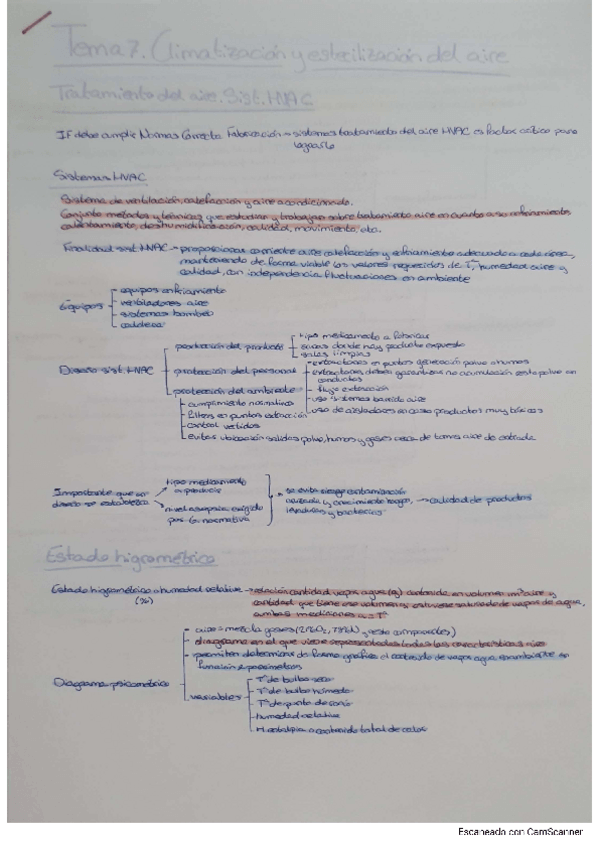 Tema 7. Climatización y esterilización del aire
Tratamiento del aire. Sist. HVAC
IF debe cumplir Normas Correcta Fabricación → sistemas tratamiento del aire HVAC es factor crítico para
lograrlo
Sistemas HVAC
Sistema de ventilación, calefacción y aire acondicionado.
Conjunto métodos y técnicas que estudian y trabajan sobre tratamiento aire en cuanto a su enfriamiento
calentamiento, deshumidificación, calidad, movimiento, etc.
Finalidad sist. HVAC → proporcionar corriente aire calefacción y enfriamiento adecuado a cada área,
manteniendo de forma viable los valores requeridos de Tª, humedad aire y
calidad, con independencia fluctuaciones en ambiente
Equipos
equipos enfriamiento
ventiladores aire
sistemas bombeo
calderas
Diseño sist. HVAC
protección del producto
tipo medicamento a fabricar
zonas donde hay producto expuesto
salas limpias
protección del personal
extractores en puntos generación polvo o humos
extractores deben garantizar no acumulación este polvo en
conductos
flujo extracción
uso sistemas barrido aire
uso de aisladores en caso productos muy tóxicos
protección del ambiente
cumplimiento normativa
filtros en puntos extracción
control vertidos
evitar ubicación salidas polvo, humos y gases cerca de tomas aire de entrada
Importante que en
diseño se establezca
tipo medicamento
a producir
nivel asepsia exigido
por la normativa
se evita riesgo contaminación
cruzada y crecimiento hongos,
levaduras y bacterias
→ calidad de productos
Estado higrométrico
Estado higrométrico o humedad relativa → relación cantidad vapor agua (g) contenido en volumen m³ aire y
(%)
cantidad que tiene ese volumen si estuviese saturado de vapor de agua,
ambas mediciones a = Tª
Diagrama psicométrico
aire = mezcla gases (21% O₂, 78% N₂ y resto componentes)
diagrama en el que viene representadas todas las características aire
permiten determinar de forma gráfica el contenido de vapor agua en ambiente en
función parámetros
variables
Tª de bulbo seco
Tª de bulbo húmedo
Tª de punto de rocío
humedad relativa
Hentalpia o contenido total de calor
Escaneado con CamScanner